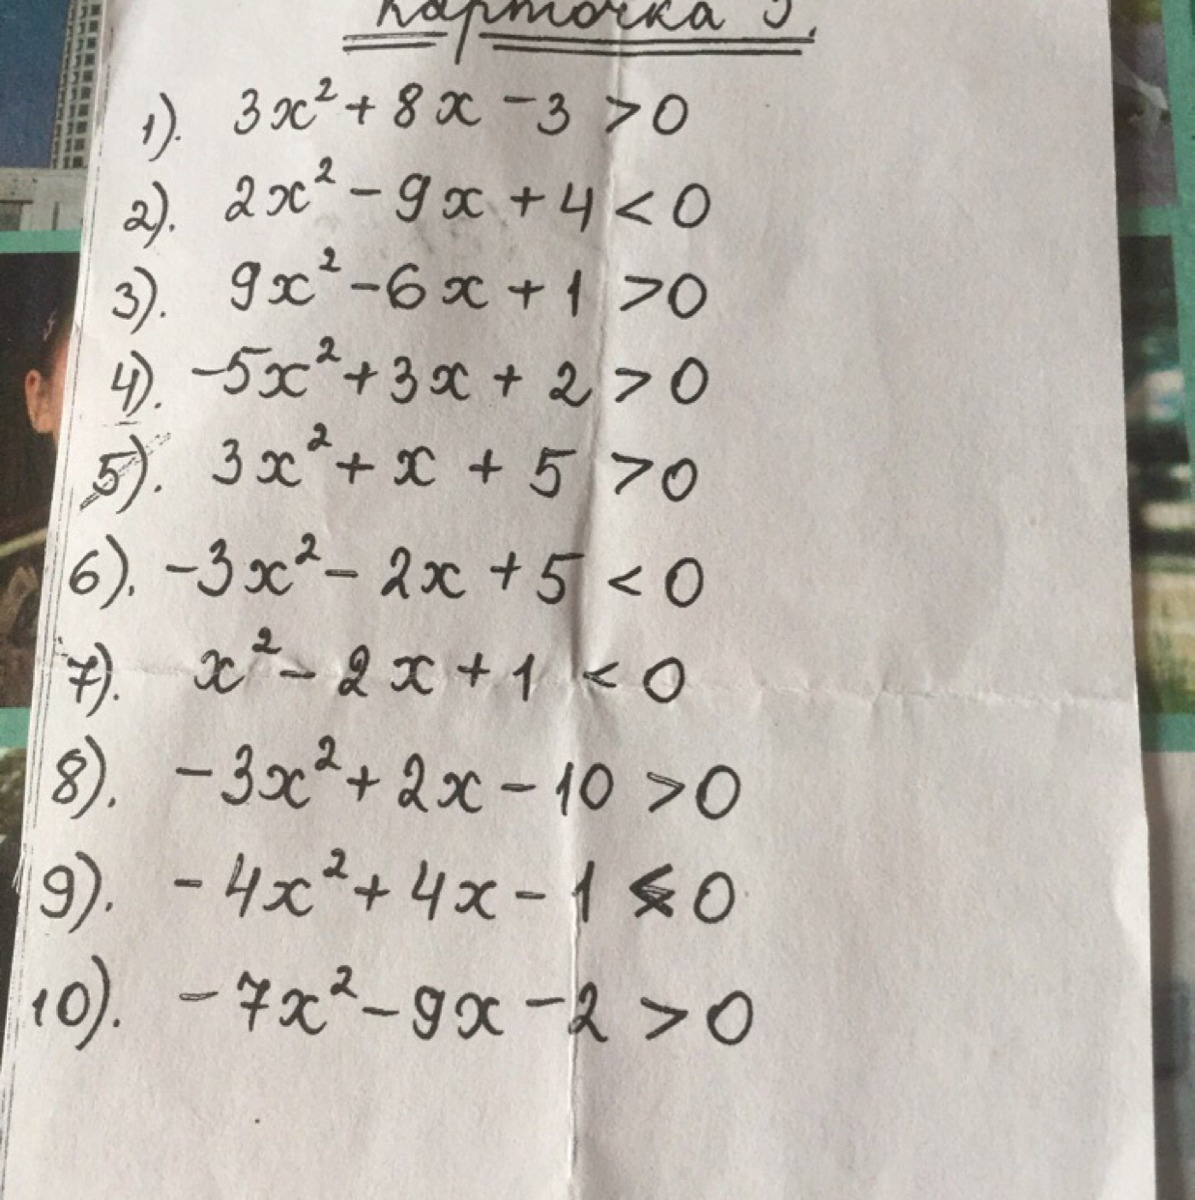 Карточка 5.
1). 3x² + 8x - 3 > 0
2). 2x² - 9x + 4 < 0
3). 9x² - 6x + 1 > 0
4). -5x² + 3x + 2 > 0
5). 3x² + x + 5 > 0
6). -3x² - 2x + 5 < 0
7). x² - 2x + 1 < 0
8). -3x² + 2x - 10 > 0
9). -4x² + 4x - 1 < 0
10). -7x² - 9x - 2 > 0